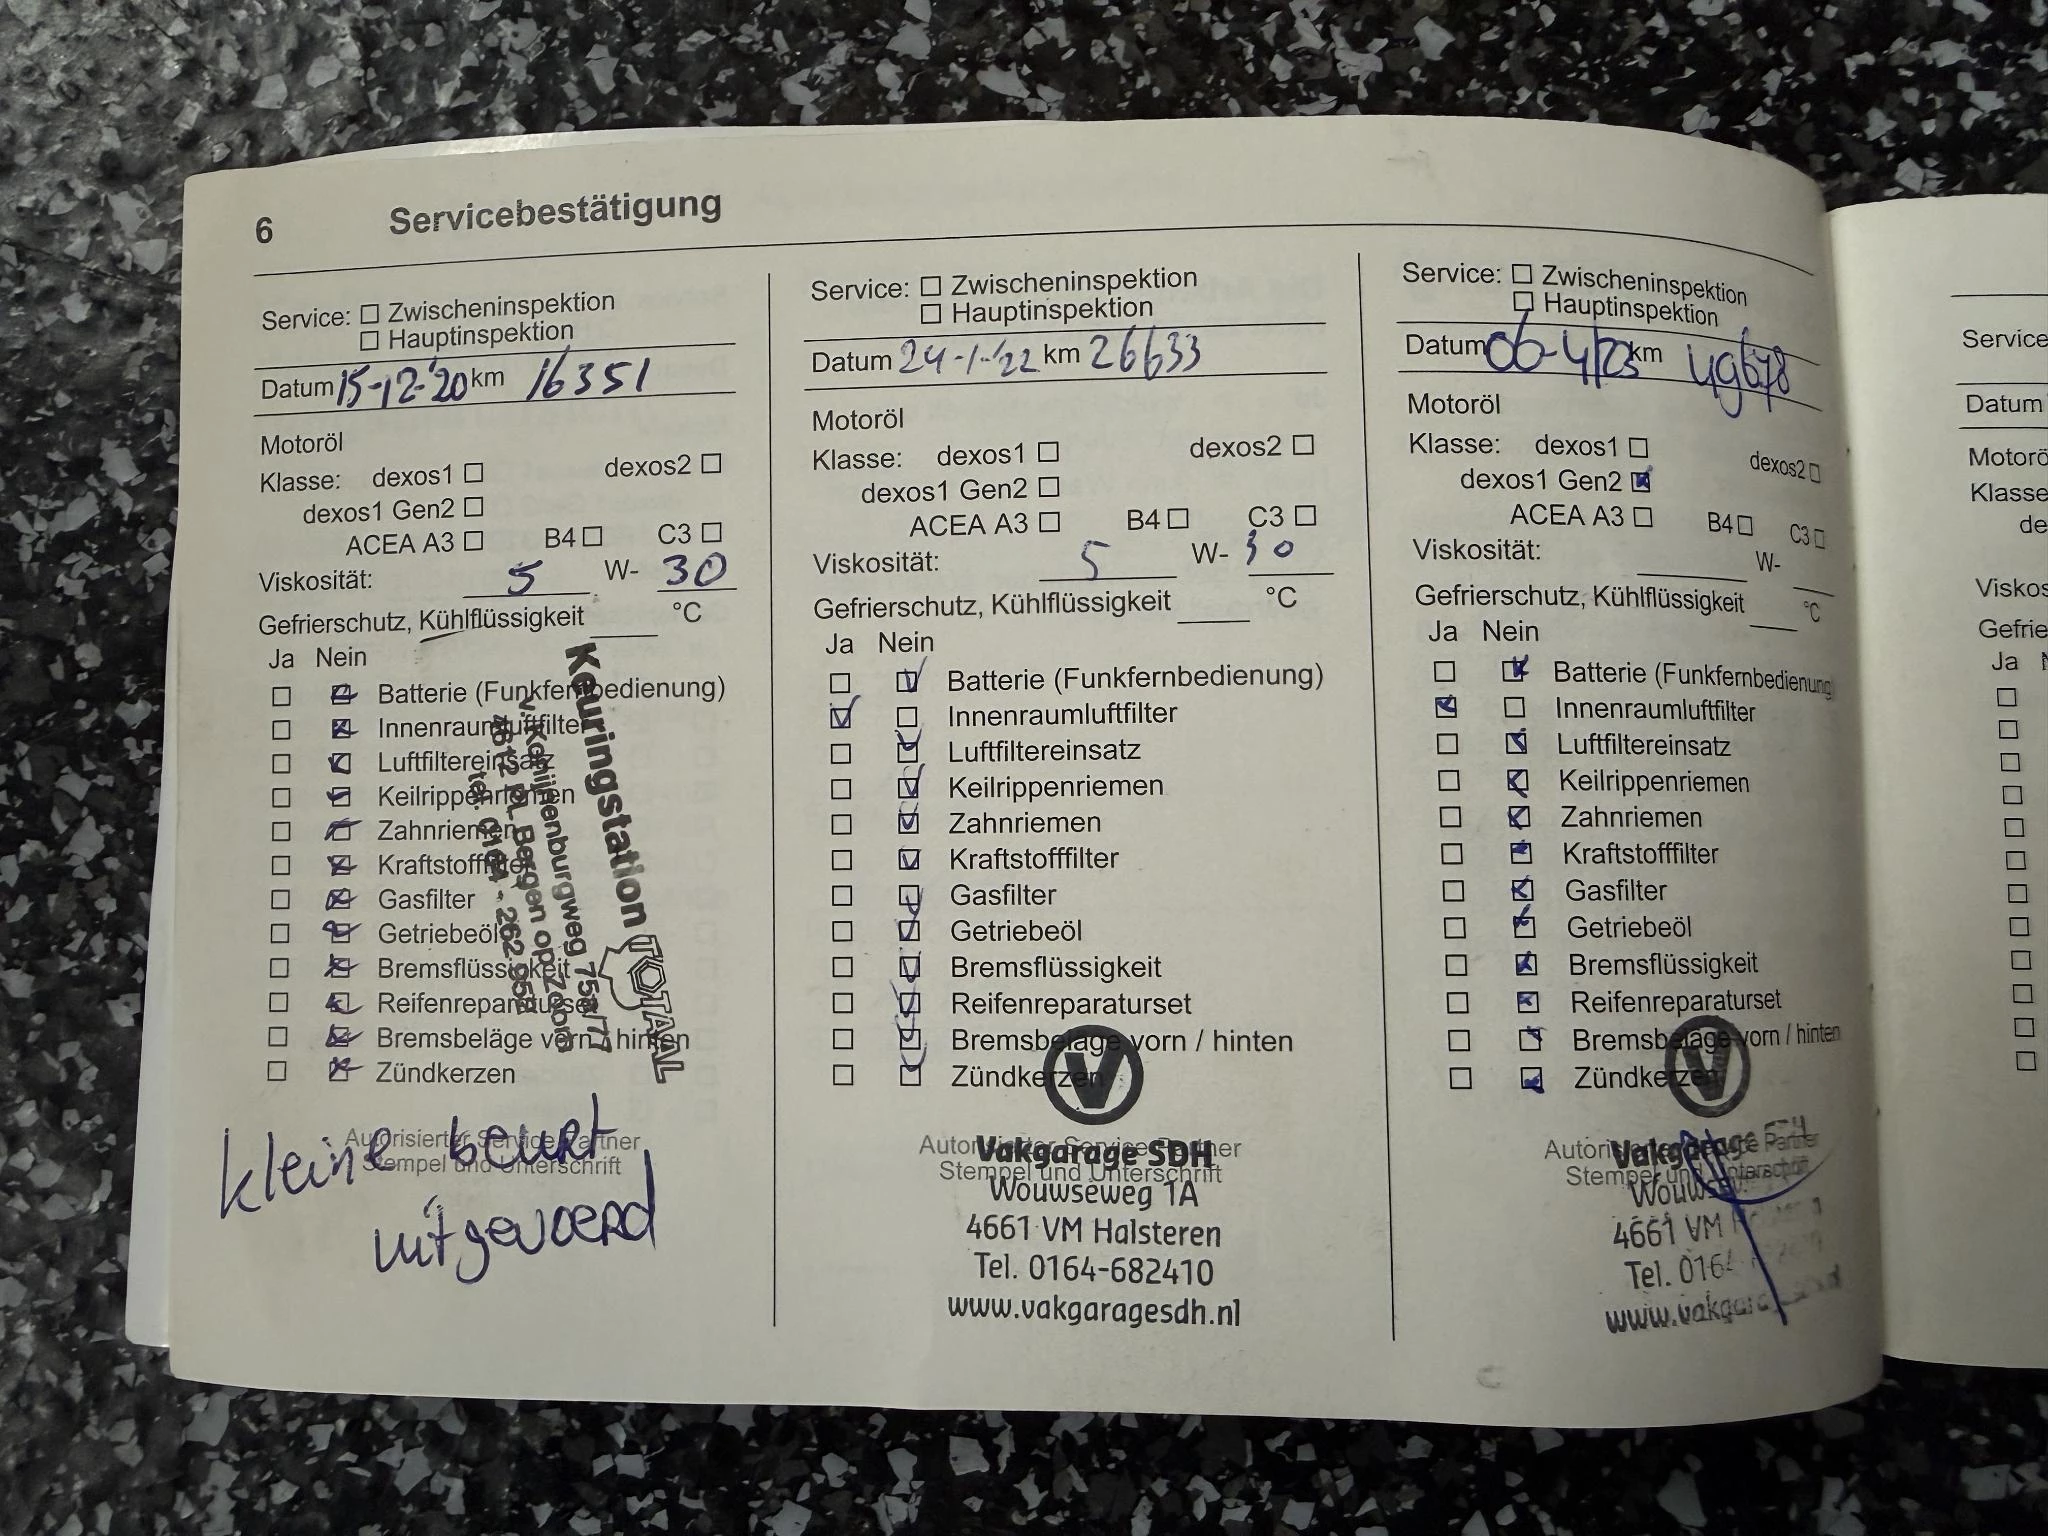 6 Servicebestätigung
Service: Zwischeninspektion
Hauptinspektion
Datum 15-12-'20 km 16351
Motoröl
Klasse: dexos1 dexos2
dexos1 Gen2
ACEA A3 B4 C3
Viskosität: 5 W- 30
Gefrierschutz, Kühlflüssigkeit °C
Ja Nein
Batterie (Funkfernbedienung)
Innenraumluftfilter
Luftfiltereinsatz
Keilrippenriemen
Zahnriemen
Kraftstofffilter
Gasfilter
Getriebeöl
Bremsflüssigkeit
Reifenreparaturset
Bremsbeläge vorn / hinten
Zündkerzen
Keuringstation TOTAAL
Bergen op Zoom
Autorisierter Service Partner
Stempel und Unterschrift
kleine beurt
uitgevoerd
Service: Zwischeninspektion
Hauptinspektion
Datum 24-1-'22 km 26633
Motoröl
Klasse: dexos1 dexos2
dexos1 Gen2
ACEA A3 B4 C3
Viskosität: 5 W- 30
Gefrierschutz, Kühlflüssigkeit °C
Ja Nein
Batterie (Funkfernbedienung)
Innenraumluftfilter
Luftfiltereinsatz
Keilrippenriemen
Zahnriemen
Kraftstofffilter
Gasfilter
Getriebeöl
Bremsflüssigkeit
Reifenreparaturset
Bremsbeläge vorn / hinten
Zündkerzen
V
Autorisierter Service Partner
Stempel und Unterschrift
Vakgarage SDH
Wouwseweg 1A
4661 VM Halsteren
Tel. 0164-682410
www.vakgaragesdh.nl
Service: Zwischeninspektion
Hauptinspektion
Datum 06-4/23 km 49678
Motoröl
Klasse: dexos1 dexos2
dexos1 Gen2
ACEA A3 B4 C3
Viskosität: W-
Gefrierschutz, Kühlflüssigkeit °C
Ja Nein
Batterie (Funkfernbedienung
Innenraumluftfilter
Luftfiltereinsatz
Keilrippenriemen
Zahnriemen
Kraftstofffilter
Gasfilter
Getriebeöl
Bremsflüssigkeit
Reifenreparaturset
Bremsbeläge vorn / hinten
Zündkerzen
V
Autorisierter Service Partner
Stempel und Unterschrift
Vakgarage
4661 VM
Tel. 0164
Service
Datum
Motorö
Klasse
de
Viskos
Gefrie
Ja